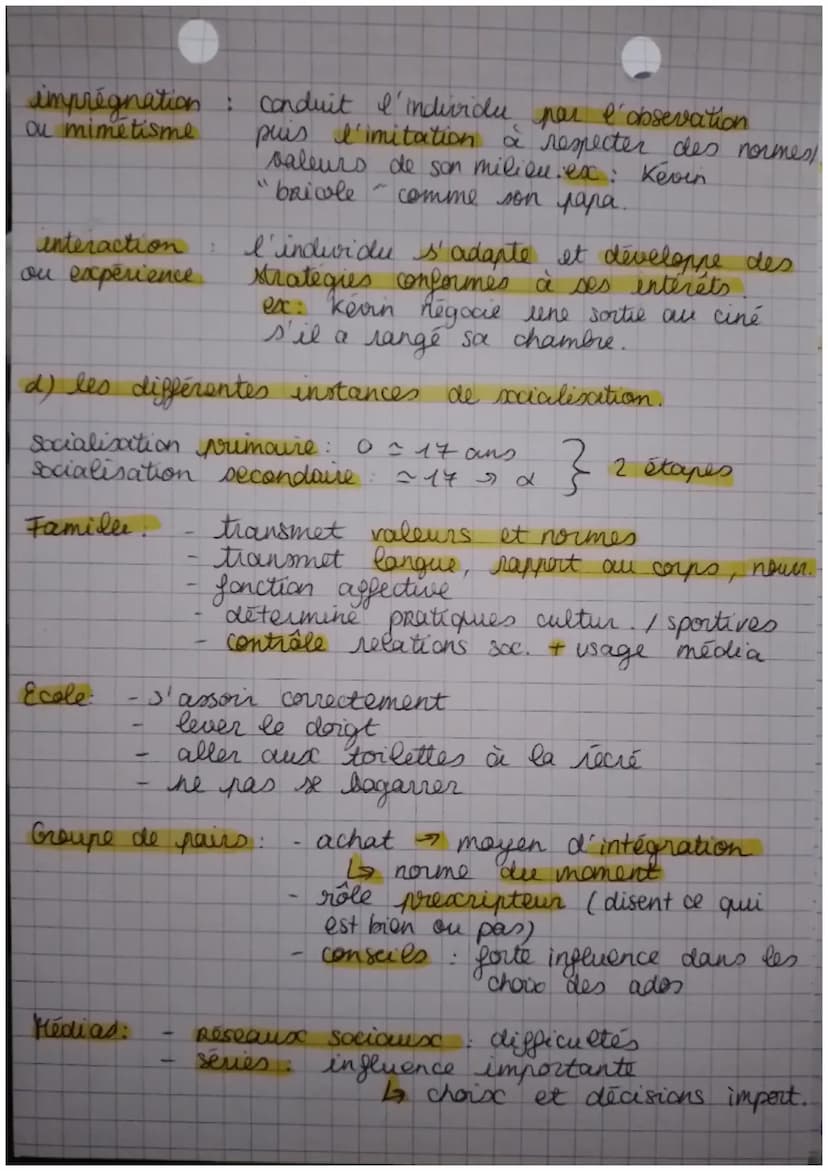 imprégnation : conduit l'individu par l'observation
ou mimétisme puis l'imitation à respecter des normes/
valeurs de son milieu. ex : Kévin
"bricole" comme son papa.
interaction : l'individu s'adapte et développe des
ou expérience stratégies conformes à ses intérêts.
ex : Kévin négocie une sortie au ciné
s'il a rangé sa chambre.
d) les différentes instances de socialisation.
socialisation primaire : 0 ≃ 17 ans
socialisation secondaire : ≃ 17 → α } 2 étapes
Famille : - transmet valeurs et normes
- transmet langue, rapport au corps, nourr.
- fonction affective
- détermine pratiques cultur. / sportives
- contrôle relations soc. + usage média
Ecole : - s'assoir correctement
- lever le doigt
- aller aux toilettes à la récré
- ne pas se bagarrer
Groupe de pairs : - achat → moyen d'intégration
↳ norme du moment
- rôle prescripteur (disent ce qui
est bien ou pas)
- conseils : forte influence dans les
choix des ados
Médias : - Réseaux sociaux : difficultés
- séries : influence importante
↳ choix et décisions import.